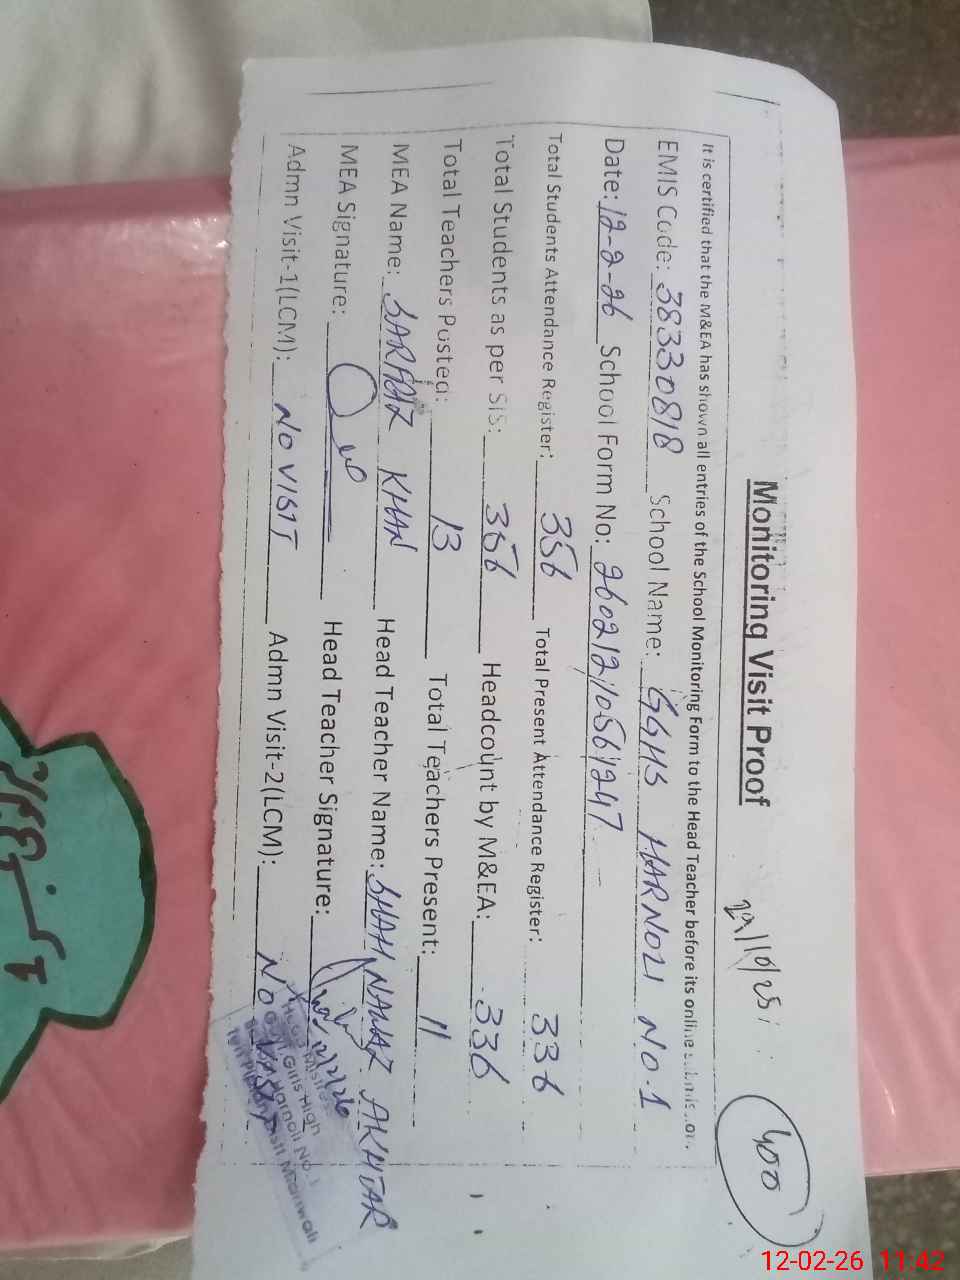 400
Monitoring Visit Proof
It is certified that the M&EA has shown all entries of the School Monitoring Form to the Head Teacher before its online submission.
EMIS Code: 38330818 School Name: GGHS HARNOLI NO.1
Date: 12-2-26 School Form No:
Total Students Attendance Register: 356 Total Present Attendance Register: 336
Total Students as per SIS: 356 Headcount by M&EA: 336
Total Teachers Posted: 13 Total Teachers Present: 11
MEA Name: SARFRAZ KHAN Head Teacher Name: SHAH NAWAZ AKHTAR
MEA Signature: Head Teacher Signature: 12/2/26
Admn Visit-1(LCM): NO VISIT Admn Visit-2(LCM): NO VISIT
Headmistress
Govt. Girls High
Harnoli No. 1
Mianwali
12-02-26 11:42